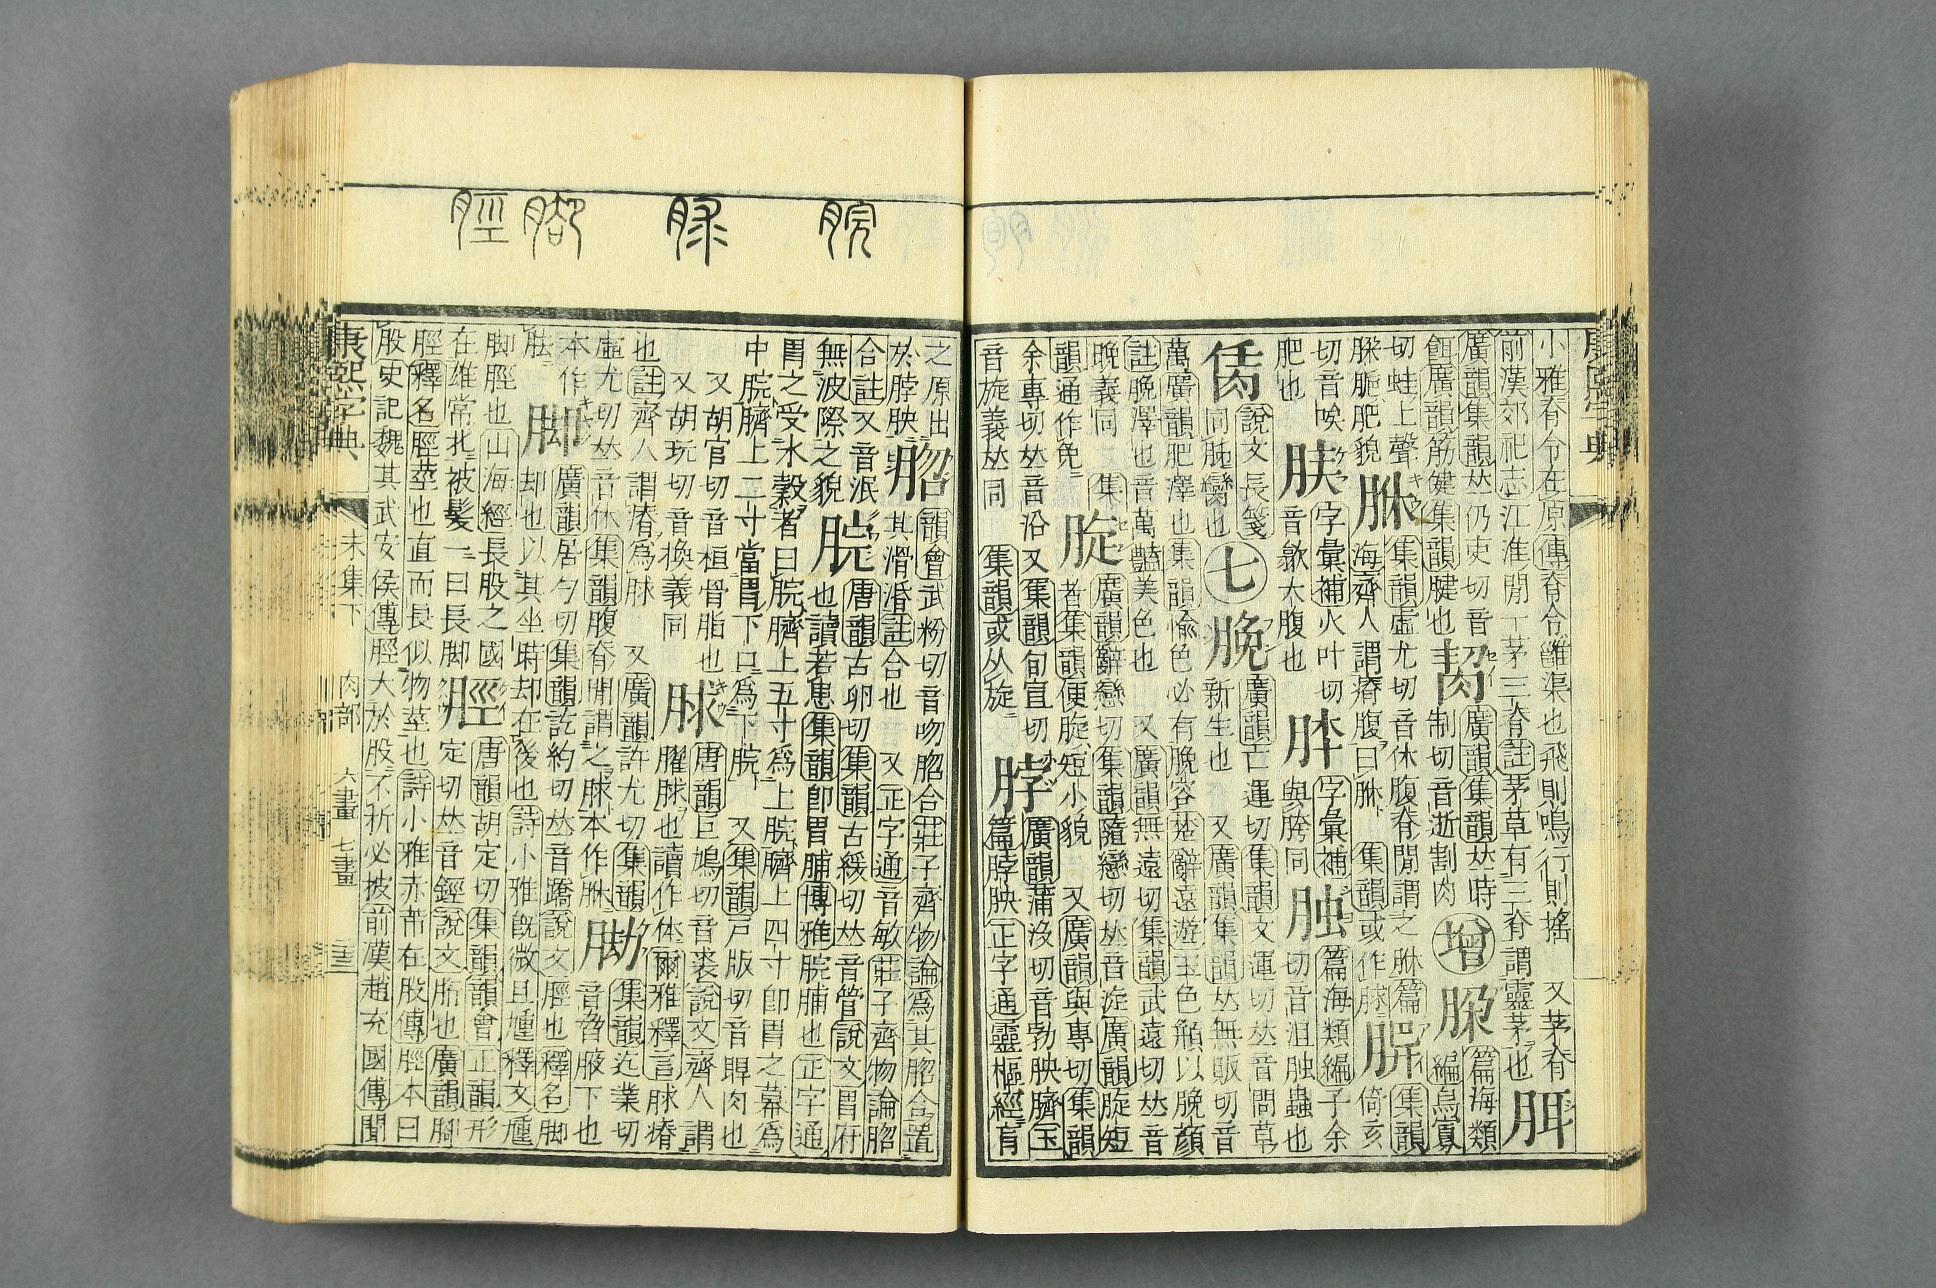 小雅脊令在原傳脊令雝渠也飛則鳴行則搖 又茅脊
前漢郊祀志江淮閒一茅三脊註茅草有三脊謂靈茅也
廣韻集韻𠀤仍吏切音
廣韻集韻𠀤時
制切音逝割肉
增
篇海類
編烏
餌廣韻筋健集韻腱也
切蛙上聲
脒脃肥貌
集韻虛尤切音休腹脊閒謂之脙篇
海齊人謂瘠腹曰脙 集韻或作
集韻
倚亥
切音唉
肥也
胅
字彙補火叶切
音歙大腹也
字彙補
與胯同
篇海類編子余
切音沮蟲也
說文長箋
同胹臠也
七
脕
廣韻亡運切集韻文運切𠀤音問草
新生也 又廣韻集韻𠀤無販切音
萬廣韻肥澤也集韻愉色必有脕容楚辭遠遊玉色頩以脕顏
註脕澤也音萬豔美色也 又廣韻無遠切集韻武遠切𠀤音
晚義同 又集
韻通作免
廣韻辭戀切集韻隨戀切𠀤音旋廣韻短
者集韻便短小貌 又廣韻與專切集韻
余專切𠀤音沿又集韻旬宣切
音旋義𠀤同 集韻或从旋
脖
廣韻蒲沒切音勃脖胦臍玉
篇脖胦正字通靈樞經有
脘
脚
脛
之原出
於脖胦
韻會武粉切音吻合莊子齊物論爲其合置
其滑涽註合也 又正字通音敏莊子齊物論
合註又音泯
無波際之貌
脘
唐韻古卵切集韻古緩切𠀤音管說文胃府
也讀若患集韻卽胃脯博雅脘脯也正字通
胃之受水穀者曰脘臍上五寸爲上脘臍上四寸卽胃之幕爲
中脘臍上二寸當胃下口爲下脘 又集韻戸版切音睅肉也
又胡官切音桓骨脂也
又胡玩切音換義同
脙
唐韻巨鳩切音裘說文齊人謂
臞脙也讀作休爾雅釋言脙瘠
也註齊人謂瘠爲脙 又廣韻許尤切集韻
虛尤切𠀤音休集韻腹脊閒謂之脙本作脙
集韻迄業切
音脅腋下也
本作
胠
脚
廣韻居勺切集韻訖約切𠀤音蹻說文脛也釋名脚
却也以其坐時却在後也詩小雅旣微且尰釋文尰
脚脛也山海經長股之國
在雄常北被髮一曰長脚
脛
唐韻胡定切集韻韻會正韻形
定切𠀤音鋞說文胻也廣韻腳
脛釋名脛莖也直而長似物莖也詩小雅赤芾在股傳脛本曰
股史記魏其武安侯傳脛大於股不折必披前漢趙充國傳聞
康熙字典 未集下 肉部 六畫 七畫 二十三